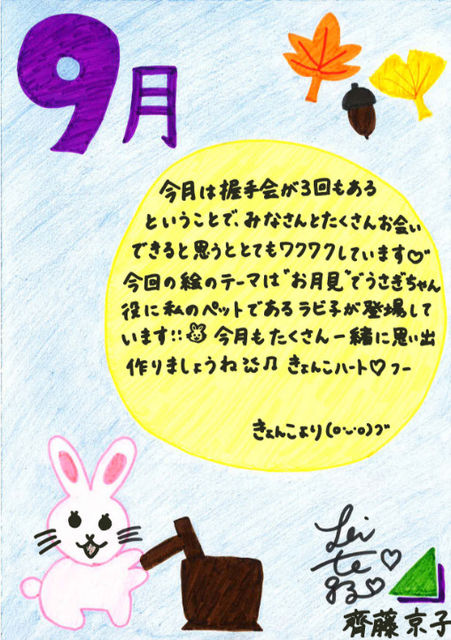 9月
今月は握手会が3回もある
ということで、みなさんとたくさんお会い
できると思うととてもワクワクしています♡
今回の絵のテーマは"お月見"でうさぎちゃん
役に私のペットであるラビ子が登場して
います!! 今月もたくさん一緒に思い出
作りましょうね♫ きょんこハート♡フー
きょんこより(o·ᴗ·o)ﾂﾞ
齊藤京子